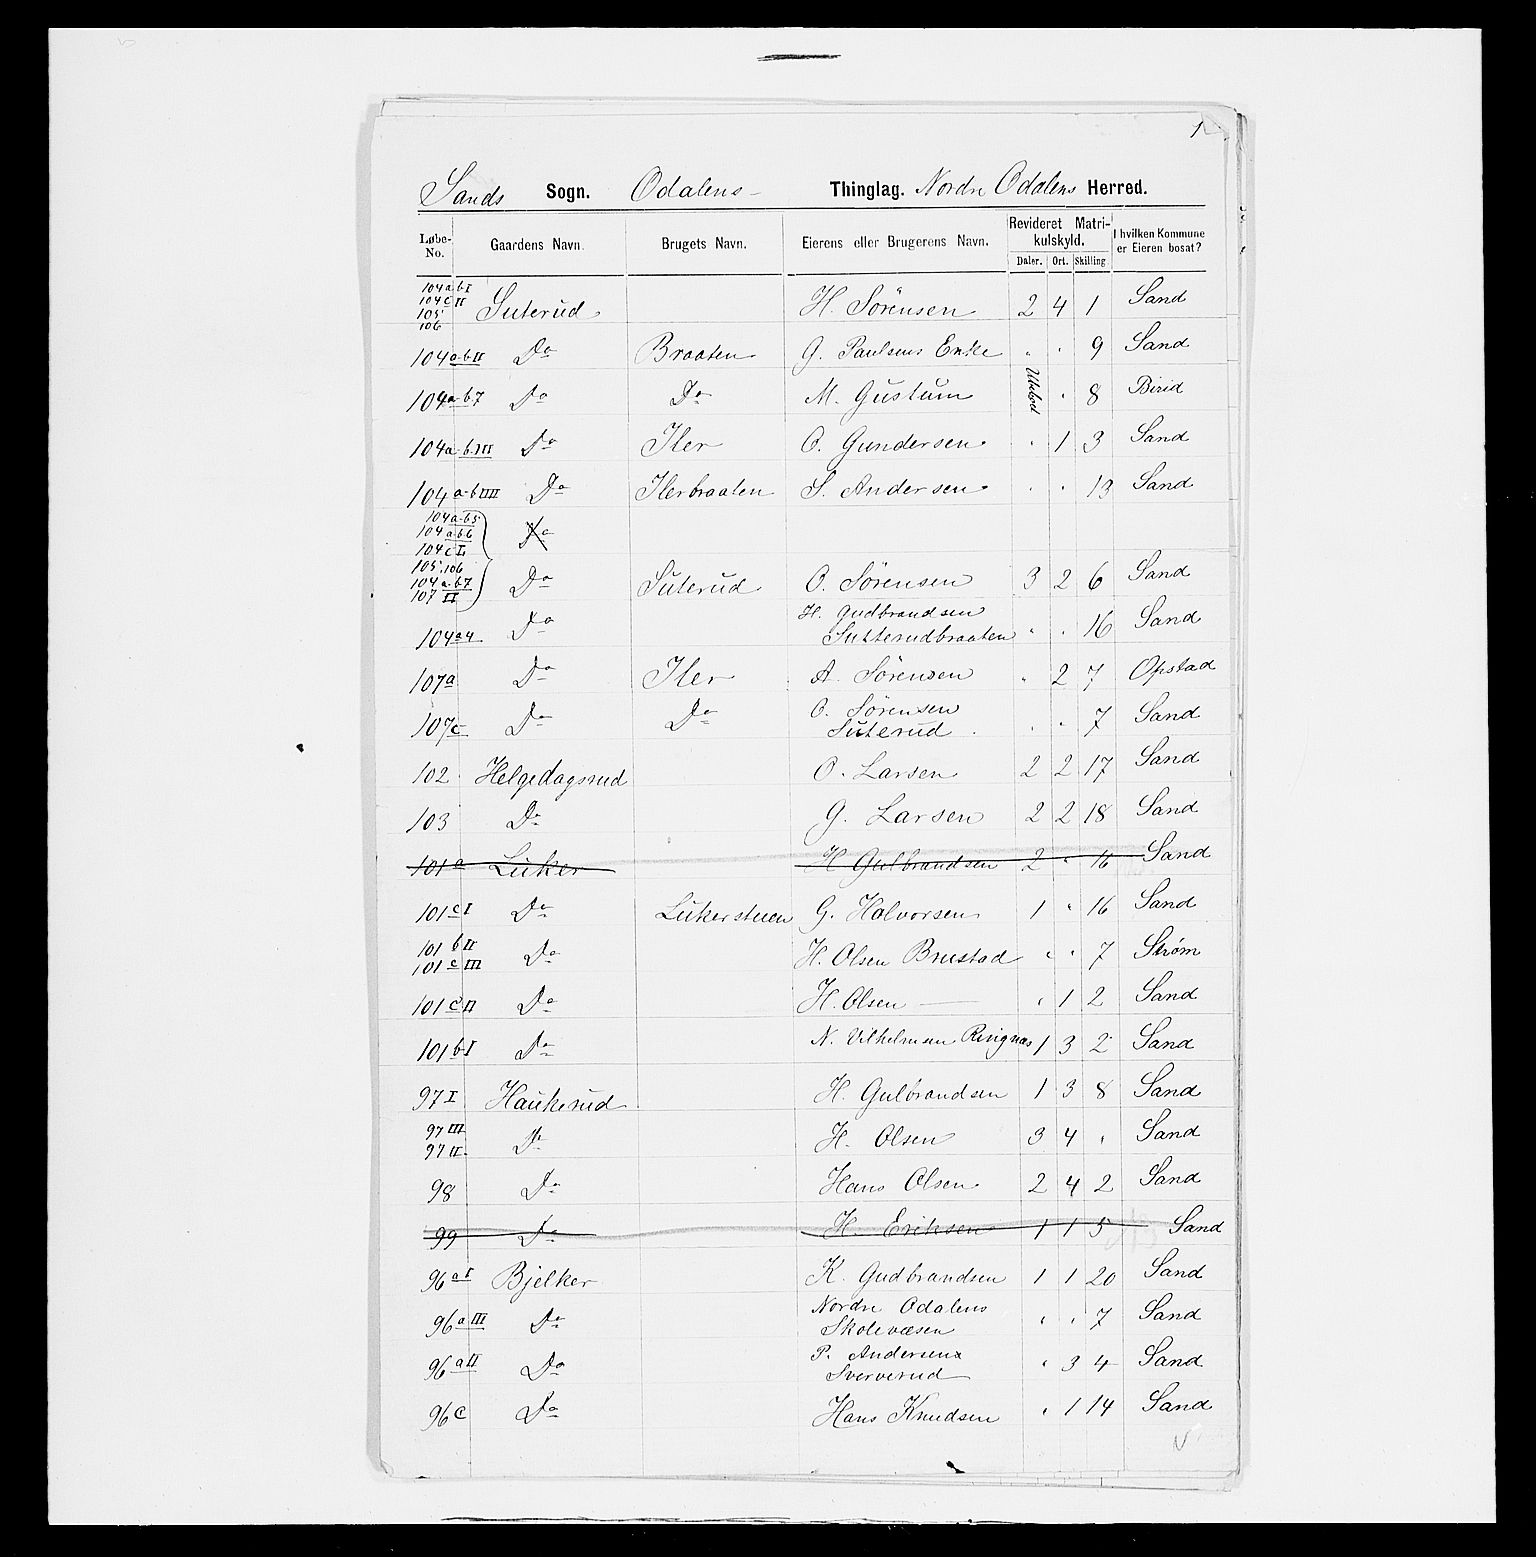 1
Sands Sogn. Odalens Thinglag. Nordre Odalens Herred.
Løbe-No. Gaardens Navn. Brugets Navn. Eierens eller Brugerens Navn. Revideret Matrikulskyld. I hvilken Kommune er Eieren bosat?
Daler. Ort. Skilling
104 a b I
104 c II
105
106 Suterud H. Sörensen 2 4 1 Sand
104 a-b II Do Braaten G. Paulsens Enke " " 9 Sand
104 a-b 7 Do Do M. Gustum " 8 Birid
104 a-b III Do Iler O. Gundersen " 1 3 Sand
104 a-b IIII Do Ilerbraaten S. Andersen " " 13 Sand
104 a-b 5
104 a b 6 Do
104 c I
105.106
104 a-b 7
107 II Do Suterud O. Sörensen 3 2 6 Sand
104 a 4 Do H. Gudbrandsen
Sutterudbraaten " " 16 Sand
107 a Do Iler A. Sörensen " 2 7 Opstad
107 c Do Do O. Sörensen
Suterud " " 7 Sand
102 Helgedagsrud O. Larsen 2 2 17 Sand
103 Do G. Larsen 2 2 18 Sand
101 a Luker H Gulbrandsen 2 " 16 Sand
101 c I Do Lukerstuen G. Halvorsen 1 " 16 Sand
101 b II
101 c III Do H. Olsen Brustad " " 7 Strøm
101 c II Do H. Olsen " 1 2 Sand
101 b I Do N. Vilhelmsen Ringnæs 1 3 2 Sand
97 I Haukerud H. Gulbrandsen 1 3 8 Sand
97 III
97 II Do H. Olsen 3 4 " Sand
98 Do Hans Olsen 2 4 2 Sand
99 Do H. Eriksen 1 1 5 Sand
96 a I Bjelker K. Gudbrandsen 1 1 20 Sand
96 a III Do Nordre Odalens
Skolevæsen " " 7 Sand
96 a II Do P. Andersen
Sververud " 3 4 Sand
96 c Do Hans Knudsen " 1 14 Sand